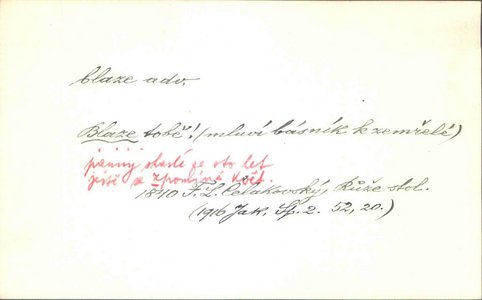 blaze adv.
Blaze tobě! (mluví básník k zemřelé)
panny sto let
ještě se zpomíná květ.
1840 F. L. Čelakovský, Růže stol.
(1916 Jak. Sp. 2. 52, 20.)